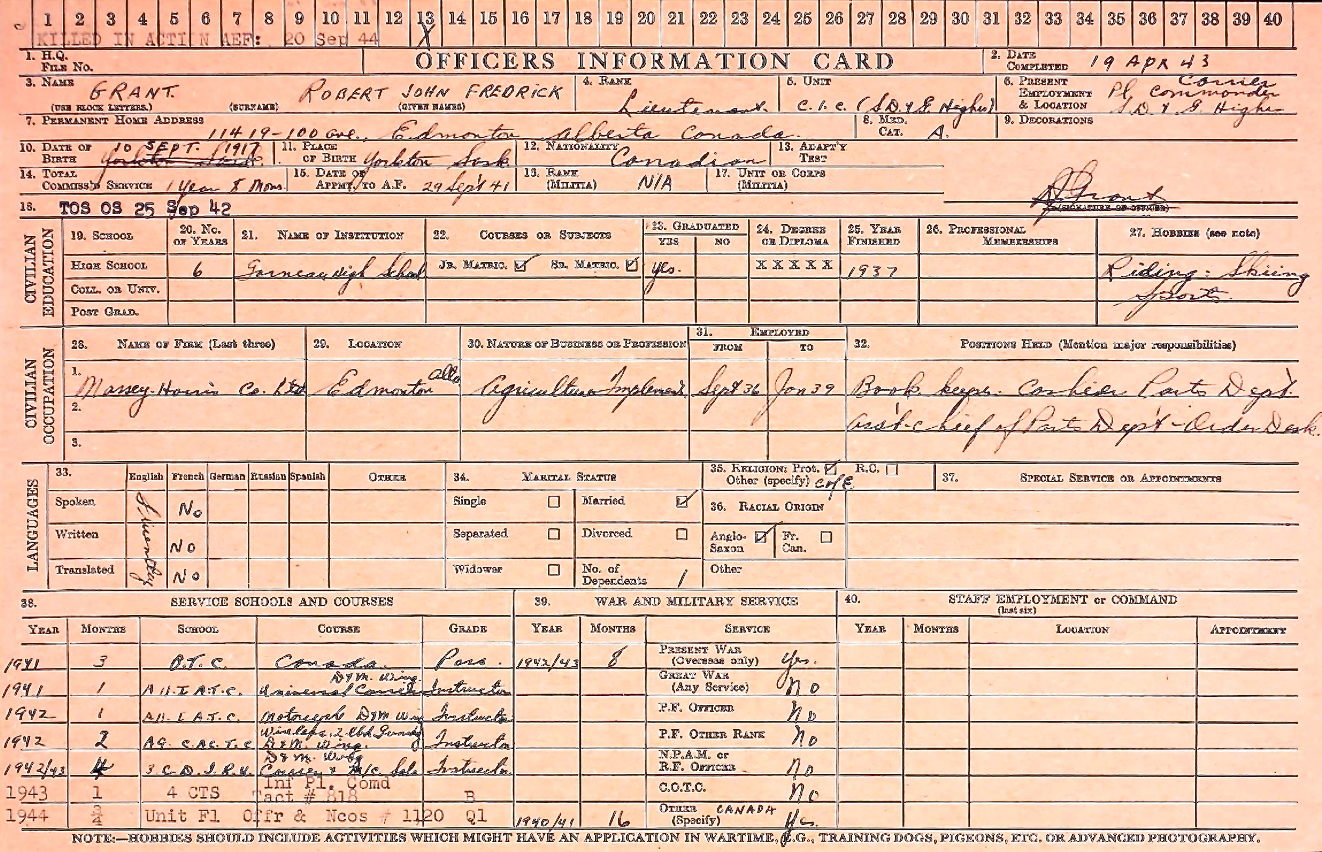 1 2 3 4 5 6 7 8 9 10 11 12 13 14 15 16 17 18 19 20 21 22 23 24 25 26 27 28 29 30 31 32 33 34 35 36 37 38 39 40
KILLED IN ACTION AEF: 20 Sep 44 X
1. H.Q. FILE No. OFFICERS INFORMATION CARD 2. DATE COMPLETED 19 APR 43
3. NAME GRANT. ROBERT JOHN FREDRICK 4. RANK Lieutenant. 5. UNIT C.I.C. (S.D. & G. Highrs) 6. PRESENT EMPLOYMENT & LOCATION Carrier Pl. Commander S.D. & G. Highrs
(USE BLOCK LETTERS.) (SURNAME) (GIVEN NAMES)
7. PERMANENT HOME ADDRESS 11419-100 ave., Edmonton Alberta Canada. 8. MED. CAT. A. 9. DECORATIONS
10. DATE OF BIRTH 10 SEPT. 1917 Yorkton Sask. 11. PLACE OF BIRTH Yorkton Sask 12. NATIONALITY Canadian 13. ADAPT'Y TEST
14. TOTAL COMMISS'N SERVICE 1 Year 8 Mons. 15. DATE OF APPMT. TO A.F. 29 Sept 41 16. RANK (MILITIA) N/A 17. UNIT OR CORPS (MILITIA)
R Grant
(SIGNATURE OF OFFICER)
18. TOS OS 25 Sep 42
CIVILIAN EDUCATION
19. SCHOOL 20. No. OF YEARS 21. NAME OF INSTITUTION 22. COURSES OR SUBJECTS 23. GRADUATED YES NO 24. DEGREE OR DIPLOMA 25. YEAR FINISHED 26. PROFESSIONAL MEMBERSHIPS 27. HOBBIES (see note)
HIGH SCHOOL 6 Garneau High School JR. MATRIC. SR. MATRIC. Yes. X X X X X 1937 Riding: Skiing
COLL. OR UNIV. Sports.
POST GRAD.
CIVILIAN OCCUPATION
28. NAME OF FIRM (Last three) 29. LOCATION 30. NATURE OF BUSINESS OR PROFESSION 31. EMPLOYED FROM TO 32. POSITIONS HELD (Mention major responsibilities)
1. Massey-Harris Co. Ltd Edmonton Alta Agriculture Implement, Sept 36 Jan 39 Book keeper. Cashier Parts Dept.
2. Ass't-chief of Parts Dep't - Order Desk.
3.
LANGUAGES
33. English French German Russian Spanish OTHER 34. MARITAL STATUS 35. RELIGION: Prot. R.C. Other (specify) C of E 37. SPECIAL SERVICE OR APPOINTMENTS
Spoken Fluently No Single Married 36. RACIAL ORIGIN
Written No Separated Divorced Anglo-Saxon Fr. Can.
Translated No Widower No. of Dependents 1 Other
38. SERVICE SCHOOLS AND COURSES 39. WAR AND MILITARY SERVICE 40. STAFF EMPLOYMENT or COMMAND (last six)
YEAR MONTHS SCHOOL COURSE GRADE YEAR MONTHS SERVICE YEAR MONTHS LOCATION APPOINTMENT
1941 3 O.T.C. Canada. Pass. 1942/43 8 PRESENT WAR (Overseas only) Yes.
1941 1 A.11.I.A.T.C. D&M. Wing. Universal Carrier Instructor GREAT WAR (Any Service) No
1942 1 A.11.I.A.T.C. Motorcycle D&M Wing Instructor P.F. OFFICER No
1942 2 Wireless, 2 lbh Gunnery D&M. Wing. Instructor P.F. OTHER RANK No
1942/43 4 3.C.D.I.R.U. D&M Wing Carrier & M/C Instructor N.P.A.M. or R.F. OFFICER No
1943 1 4 CTS Inf Pl. Comd Tact # 818 B C.O.T.C. No
1944 3/4 Unit Fl Offr & Ncos # 1120 Q1 1940/41 16 OTHER (Specify) CANADA Yes.
NOTE:—HOBBIES SHOULD INCLUDE ACTIVITIES WHICH MIGHT HAVE AN APPLICATION IN WARTIME, E.G., TRAINING DOGS, PIGEONS, ETC. OR ADVANCED PHOTOGRAPHY.